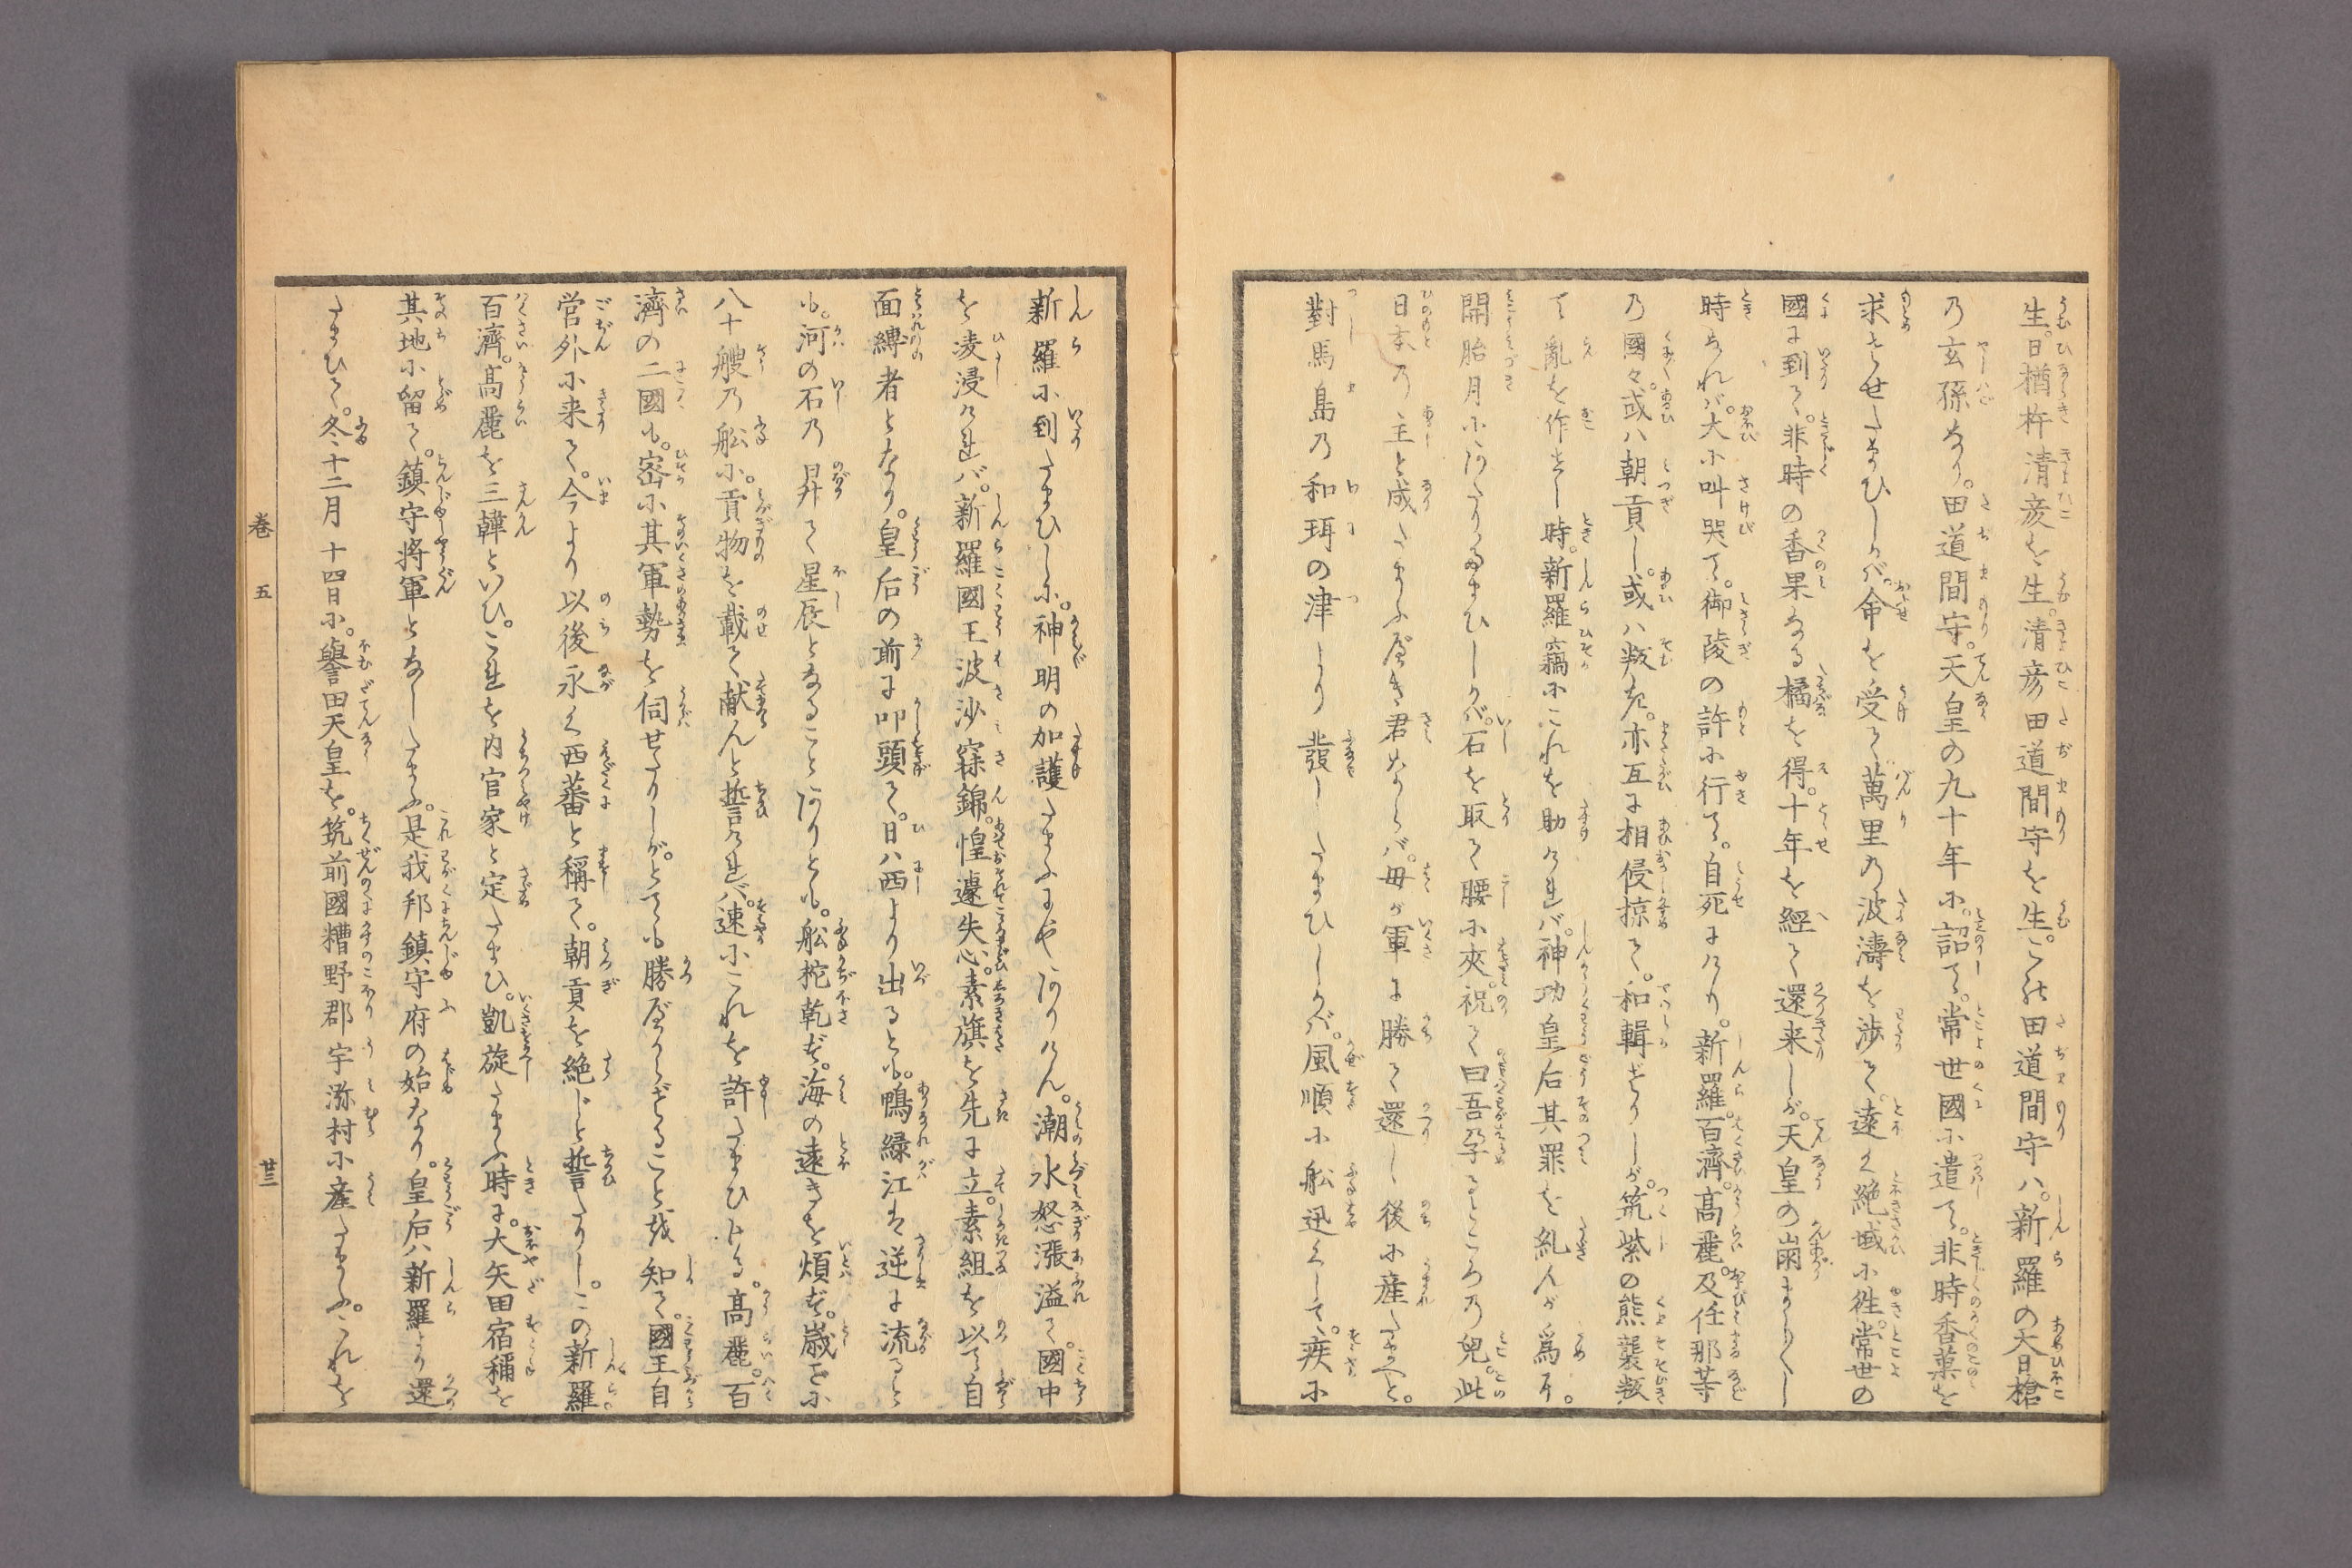 生。日楢杵清彦を生。清彦田道間守を生。この田道間守ハ。新羅の天日槍
乃玄孫なり。田道間守。天皇の九十年に。詔て。常世國に遣て。非時香菓を
求させたまひしかバ。命を受て萬里乃波濤を渉て。遠く絶域に往。常世の
國に到て。非時の香果なる橘を得。十年を經て還来しが。天皇の崩ましし
時なれバ。大に叫哭て。御陵の許に行て。自死にけり。新羅。百濟。高麗。及任那等
乃國々。或ハ朝貢し。或ハ叛き。亦互に相侵掠て。和輯ざりしが。筑紫の熊襲叛
て亂を作せし時。新羅竊にこれを助けれバ。神功皇后其罪を糺んが爲に。
開胎月にあたりたまひしかバ。石を取て腰に夾。祝て曰吾孕るところの兒。此
日本乃主と成たまふ届き君ならバ。母が軍に勝て還し後に産たまへと。
對馬島乃和珥の津より發したまひしかバ。風順に船迅くして。疾に
新羅に到たまひしに。神明の加護たまふにやありけん。潮水怒漲溢て。國中
を凌浸けれバ。新羅國王波沙寐錦。惶遽失心。素旗を先に立。素組を以て自
面縛者となり。皇后の前に叩頭て。日ハ西より出るとも。鴨緑江は逆に流ると
も。河の石乃昇て星辰となることありとも。船柁乾ず。海の遠きを煩ず。歳ごとに
八十艘乃船に。貢物を載て献んと誓けれバ。速にこれを許したまひける。高麗。百
濟の二國も。密に其軍勢を伺せたりしが。とても勝べからざることを知て。國王自
営外に来て。今より以後永く西蕃と稱て。朝貢を絶じと誓たりし。この新羅
百濟。高麗を三韓といひ。これを内官家と定たまひ。凱旋たまふ時に。大矢田宿禰を
其地に留て。鎮守将軍となしたまふ。是我邦鎮守府の始なり。皇后ハ新羅より還
たまひて。冬十二月十四日に。譽田天皇を。筑前國糟野郡宇瀰村に産たまふ。これを
巻五　廿三